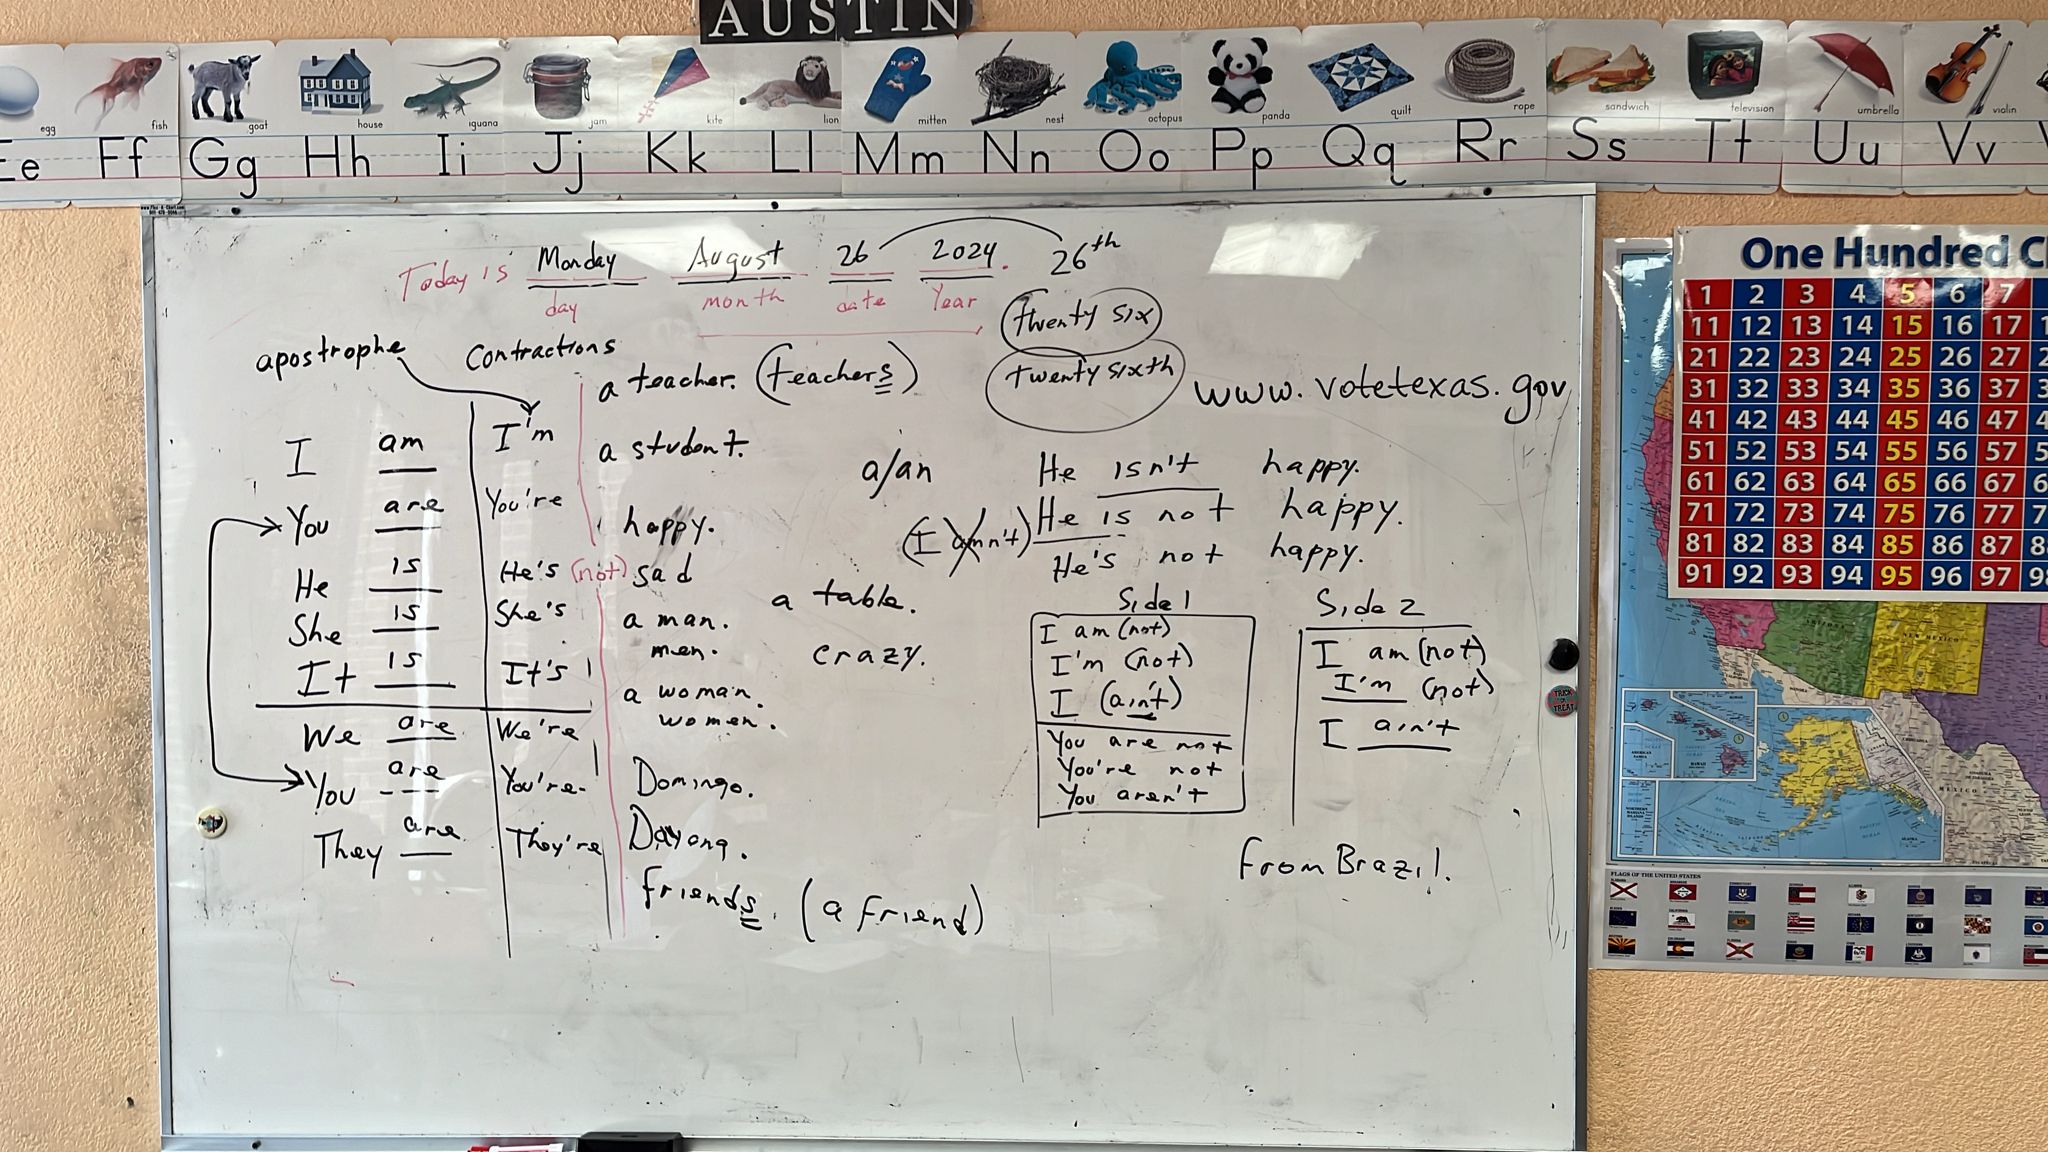 AUSTIN
egg fish goat house iguana jam kite lion mitten nest octopus panda quilt rope sandwich television umbrella violin
Ee Ff Gg Hh Ii Jj Kk Ll Mm Nn Oo Pp Qq Rr Ss Tt Uu Vv
Today is Monday August 26 2024. 26th
day month date Year
twenty six
twenty sixth
www.votetexas.gov
apostrophe Contractions
a teacher. (teachers)
I am I'm a student.
You are You're happy.
He is He's (not) sad
She is She's a man.
men.
It is It's a woman.
women.
We are We're
You are You're Domingo.
They are They're Dayong.
friends. (a friend)
a table.
crazy.
a/an
He isn't happy.
(I amn't) He is not happy.
He's not happy.
Side 1
I am (not)
I'm (not)
I (ain't)
You are not
You're not
You aren't
Side 2
I am (not)
I'm (not)
I ain't
From Brazil.
One Hundred C
1 2 3 4 5 6 7
11 12 13 14 15 16 17
21 22 23 24 25 26 27
31 32 33 34 35 36 37
41 42 43 44 45 46 47
51 52 53 54 55 56 57
61 62 63 64 65 66 67
71 72 73 74 75 76 77
81 82 83 84 85 86 87
91 92 93 94 95 96 97
ARIZONA
NEW MEXICO
MEXICO
TRICK OR TREAT
FLAGS OF THE UNITED STATES